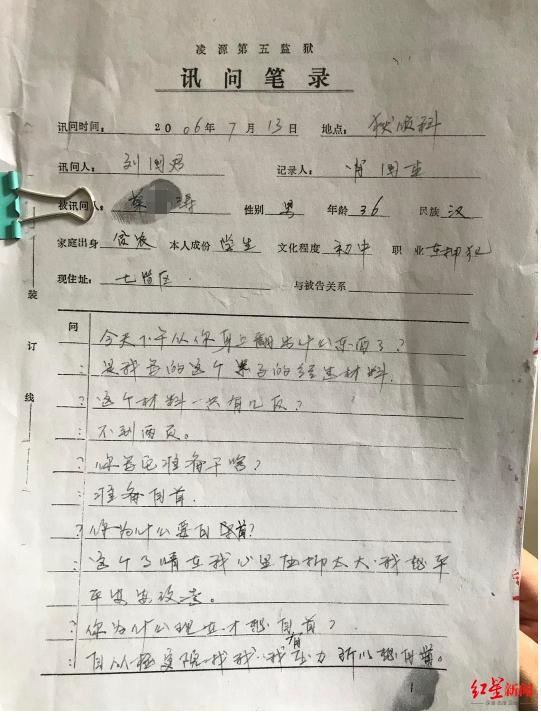 凌源第五监狱
讯问笔录
讯问时间: 2006年7月13日 地点: 狱侦科
讯问人: 刘国君 记录人: 国
被讯问人: 性别 男 年龄 36 民族 汉
家庭出身 贫农 本人成份 学生 文化程度 初中 职业 在押犯
现住址: 七监区. 与被告关系
装
订
线
问 今天下午从你身上翻出什么东西了?
是我写的这个案子的经过材料.
? 这个材料一共有几页?
: 不到两页。
? 你写它准备干啥?
: 准备自首.
? 你为什么要自首?
: 这个事情在我心里压抑太大,我想平
平安安改造。
? 你为什么现在才想自首?
: 自从检察院找我,我有压力所以想自首。
1
红星新闻